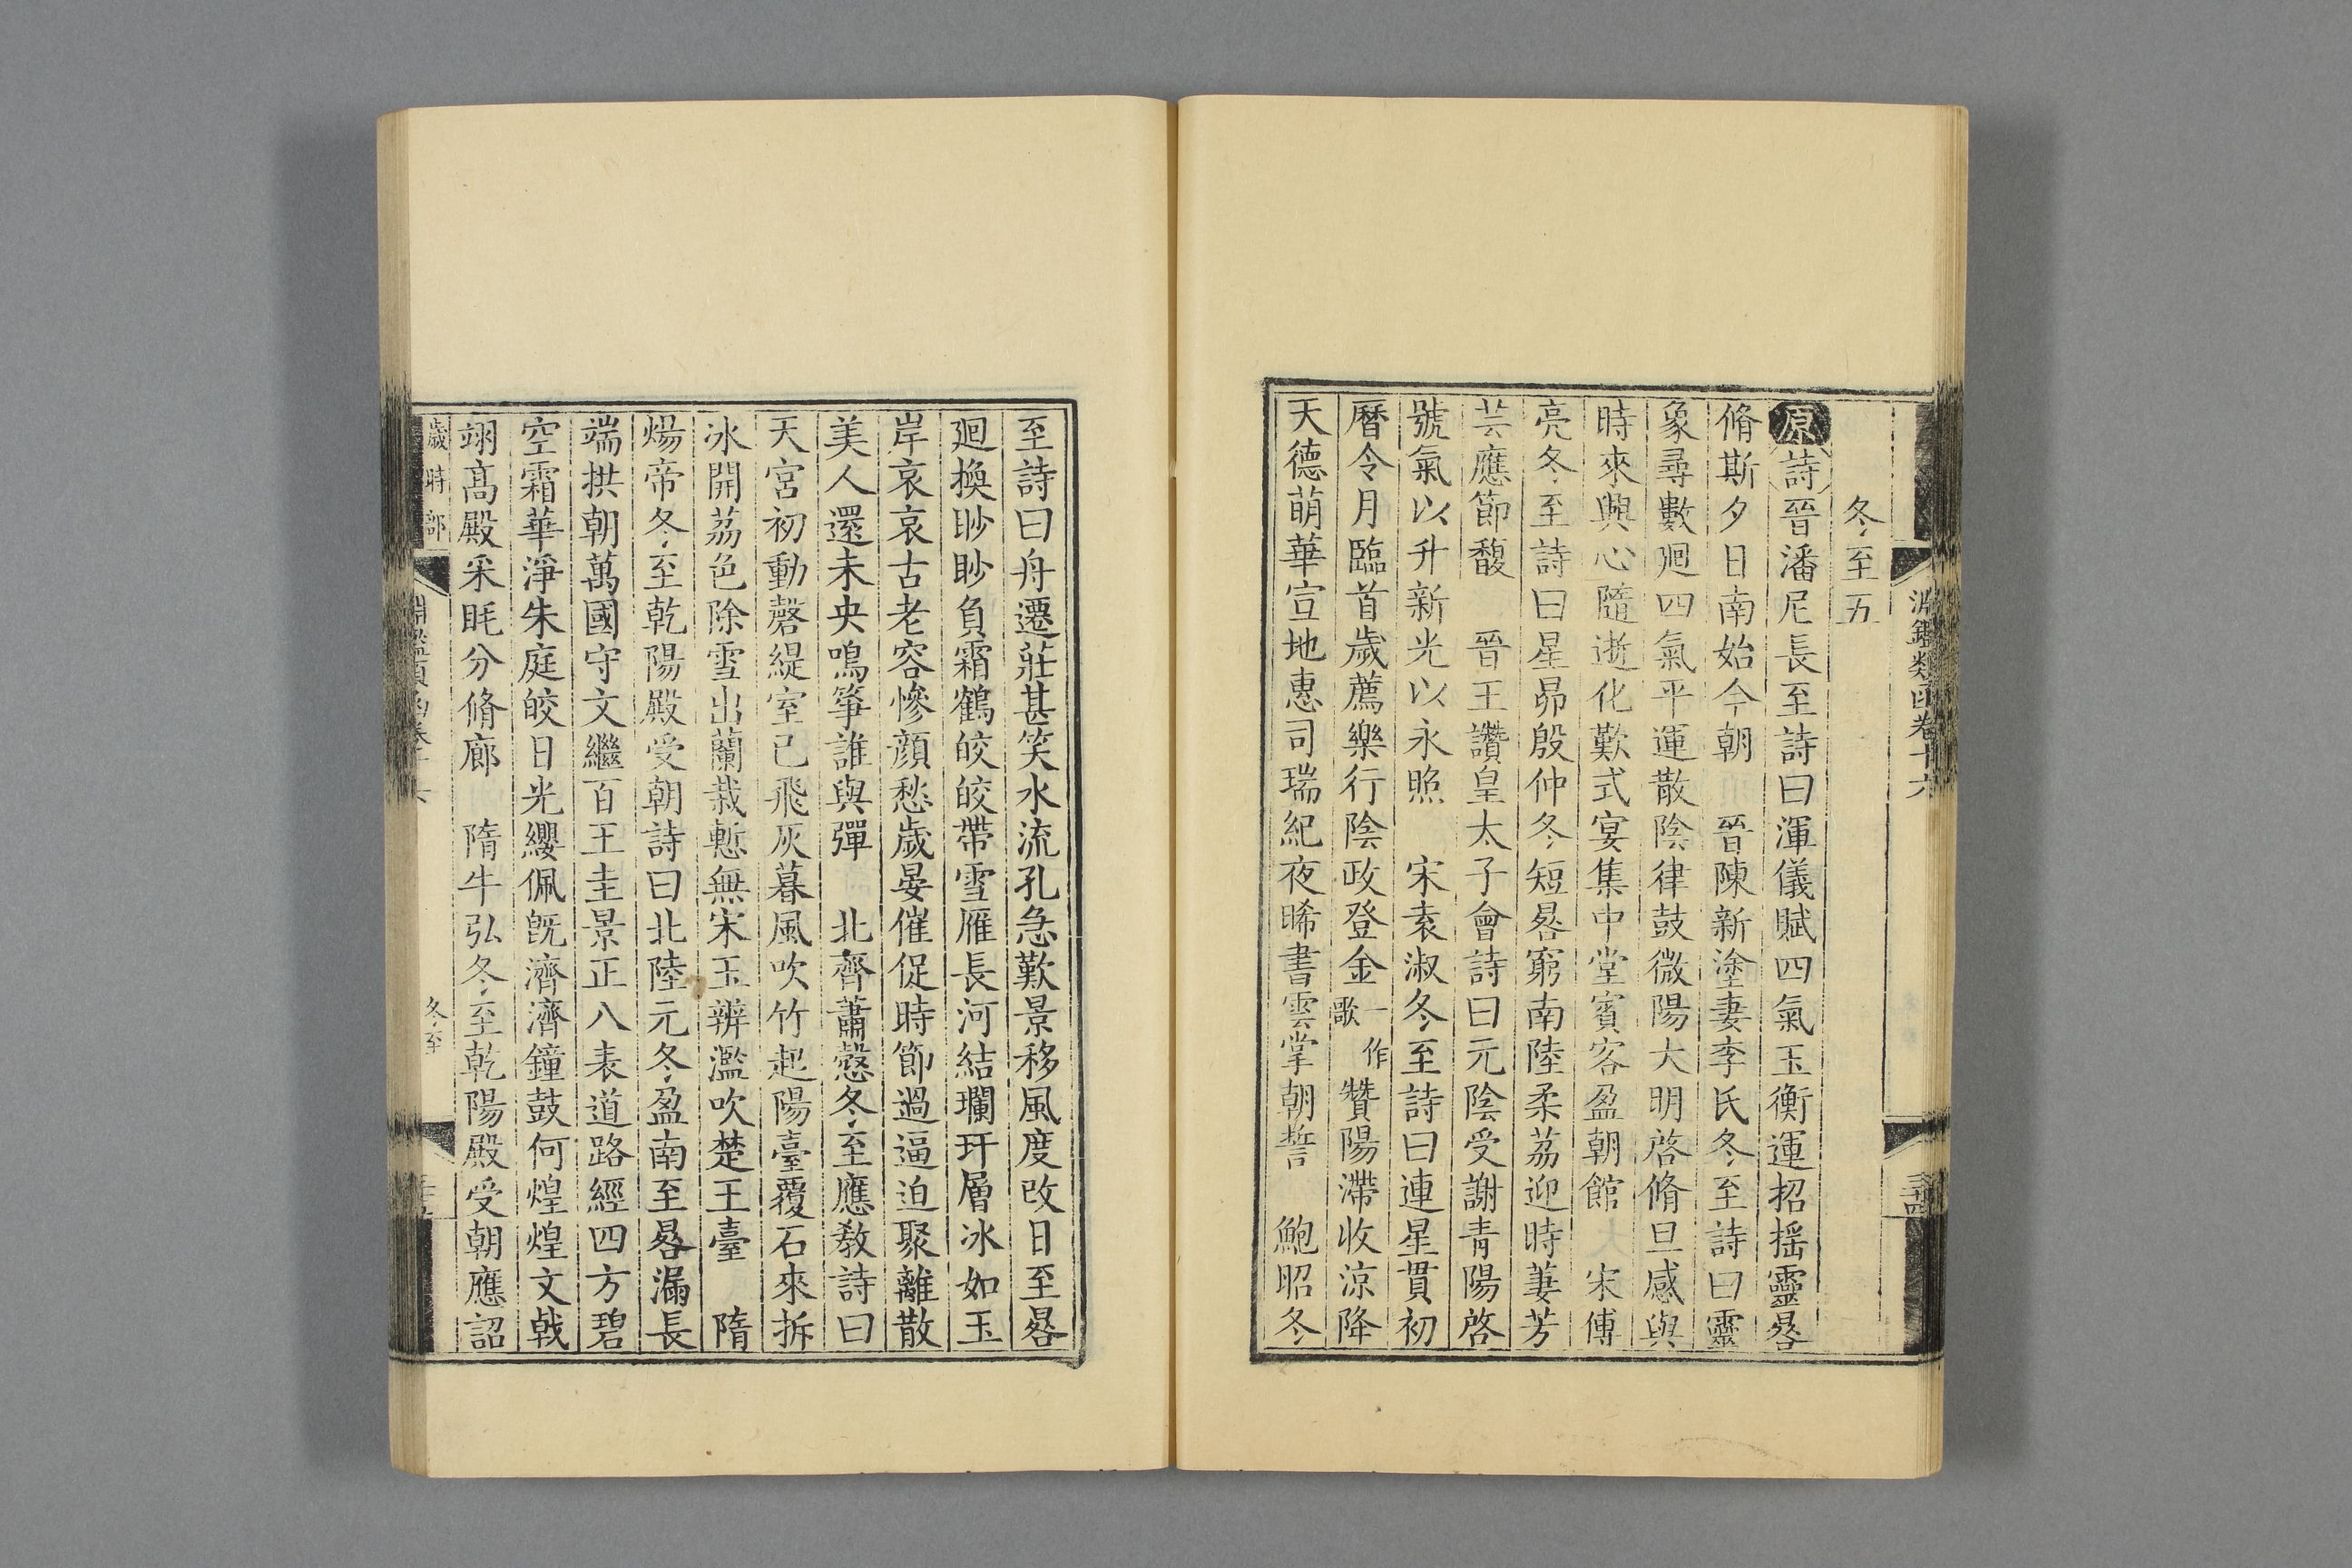 淵鑑類函卷十六
冬至五
原詩晉潘尼長至詩曰渾儀賦四氣玉衡運招搖靈晷
脩斯夕日南始今朝　晉陳新塗妻李氏冬至詩曰靈
象尋數廻四氣平運散陰律鼓微陽大明啓脩旦感與
時來興心隨逝化歎式宴集中堂賓客盈朝館　宋傅
亮冬至詩曰星昴殷仲冬短晷窮南陸柔荔迎時萋芳
芸應節馥　晉王讚皇太子會詩曰元陰受謝青陽啓
號氣以升新光以永照　宋袁淑冬至詩曰連星貫初
曆令月臨首歲薦樂行陰政登金一作歌贊陽滯收涼降
天德萌華宣地惠司瑞紀夜晞書雲掌朝誓　鮑昭冬
三十四
至詩曰舟遷莊甚笑水流孔急歎景移風度改日至晷
廻換眇眇負霜鶴皎皎帶雪雁長河結瓓玕層冰如玉
岸哀哀古老容慘顔愁歲晏催促時節過逼迫聚離散
美人還未央鳴箏誰與彈　北齊蕭慤冬至應教詩曰
天宮初動磬緹室已飛灰暮風吹竹起陽臺覆石來拆
冰開荔色除雪出蘭栽慙無宋玉辨濫吹楚王臺　隋
煬帝冬至乾陽殿受朝詩曰北陸元冬盈南至晷漏長
端拱朝萬國守文繼百王圭景正八表道路經四方碧
空霜華淨朱庭皎日光纓佩旣濟濟鐘鼓何煌煌文戟
翊高殿采眊分脩廊　隋牛弘冬至乾陽殿受朝應詔
歲時部
冬至